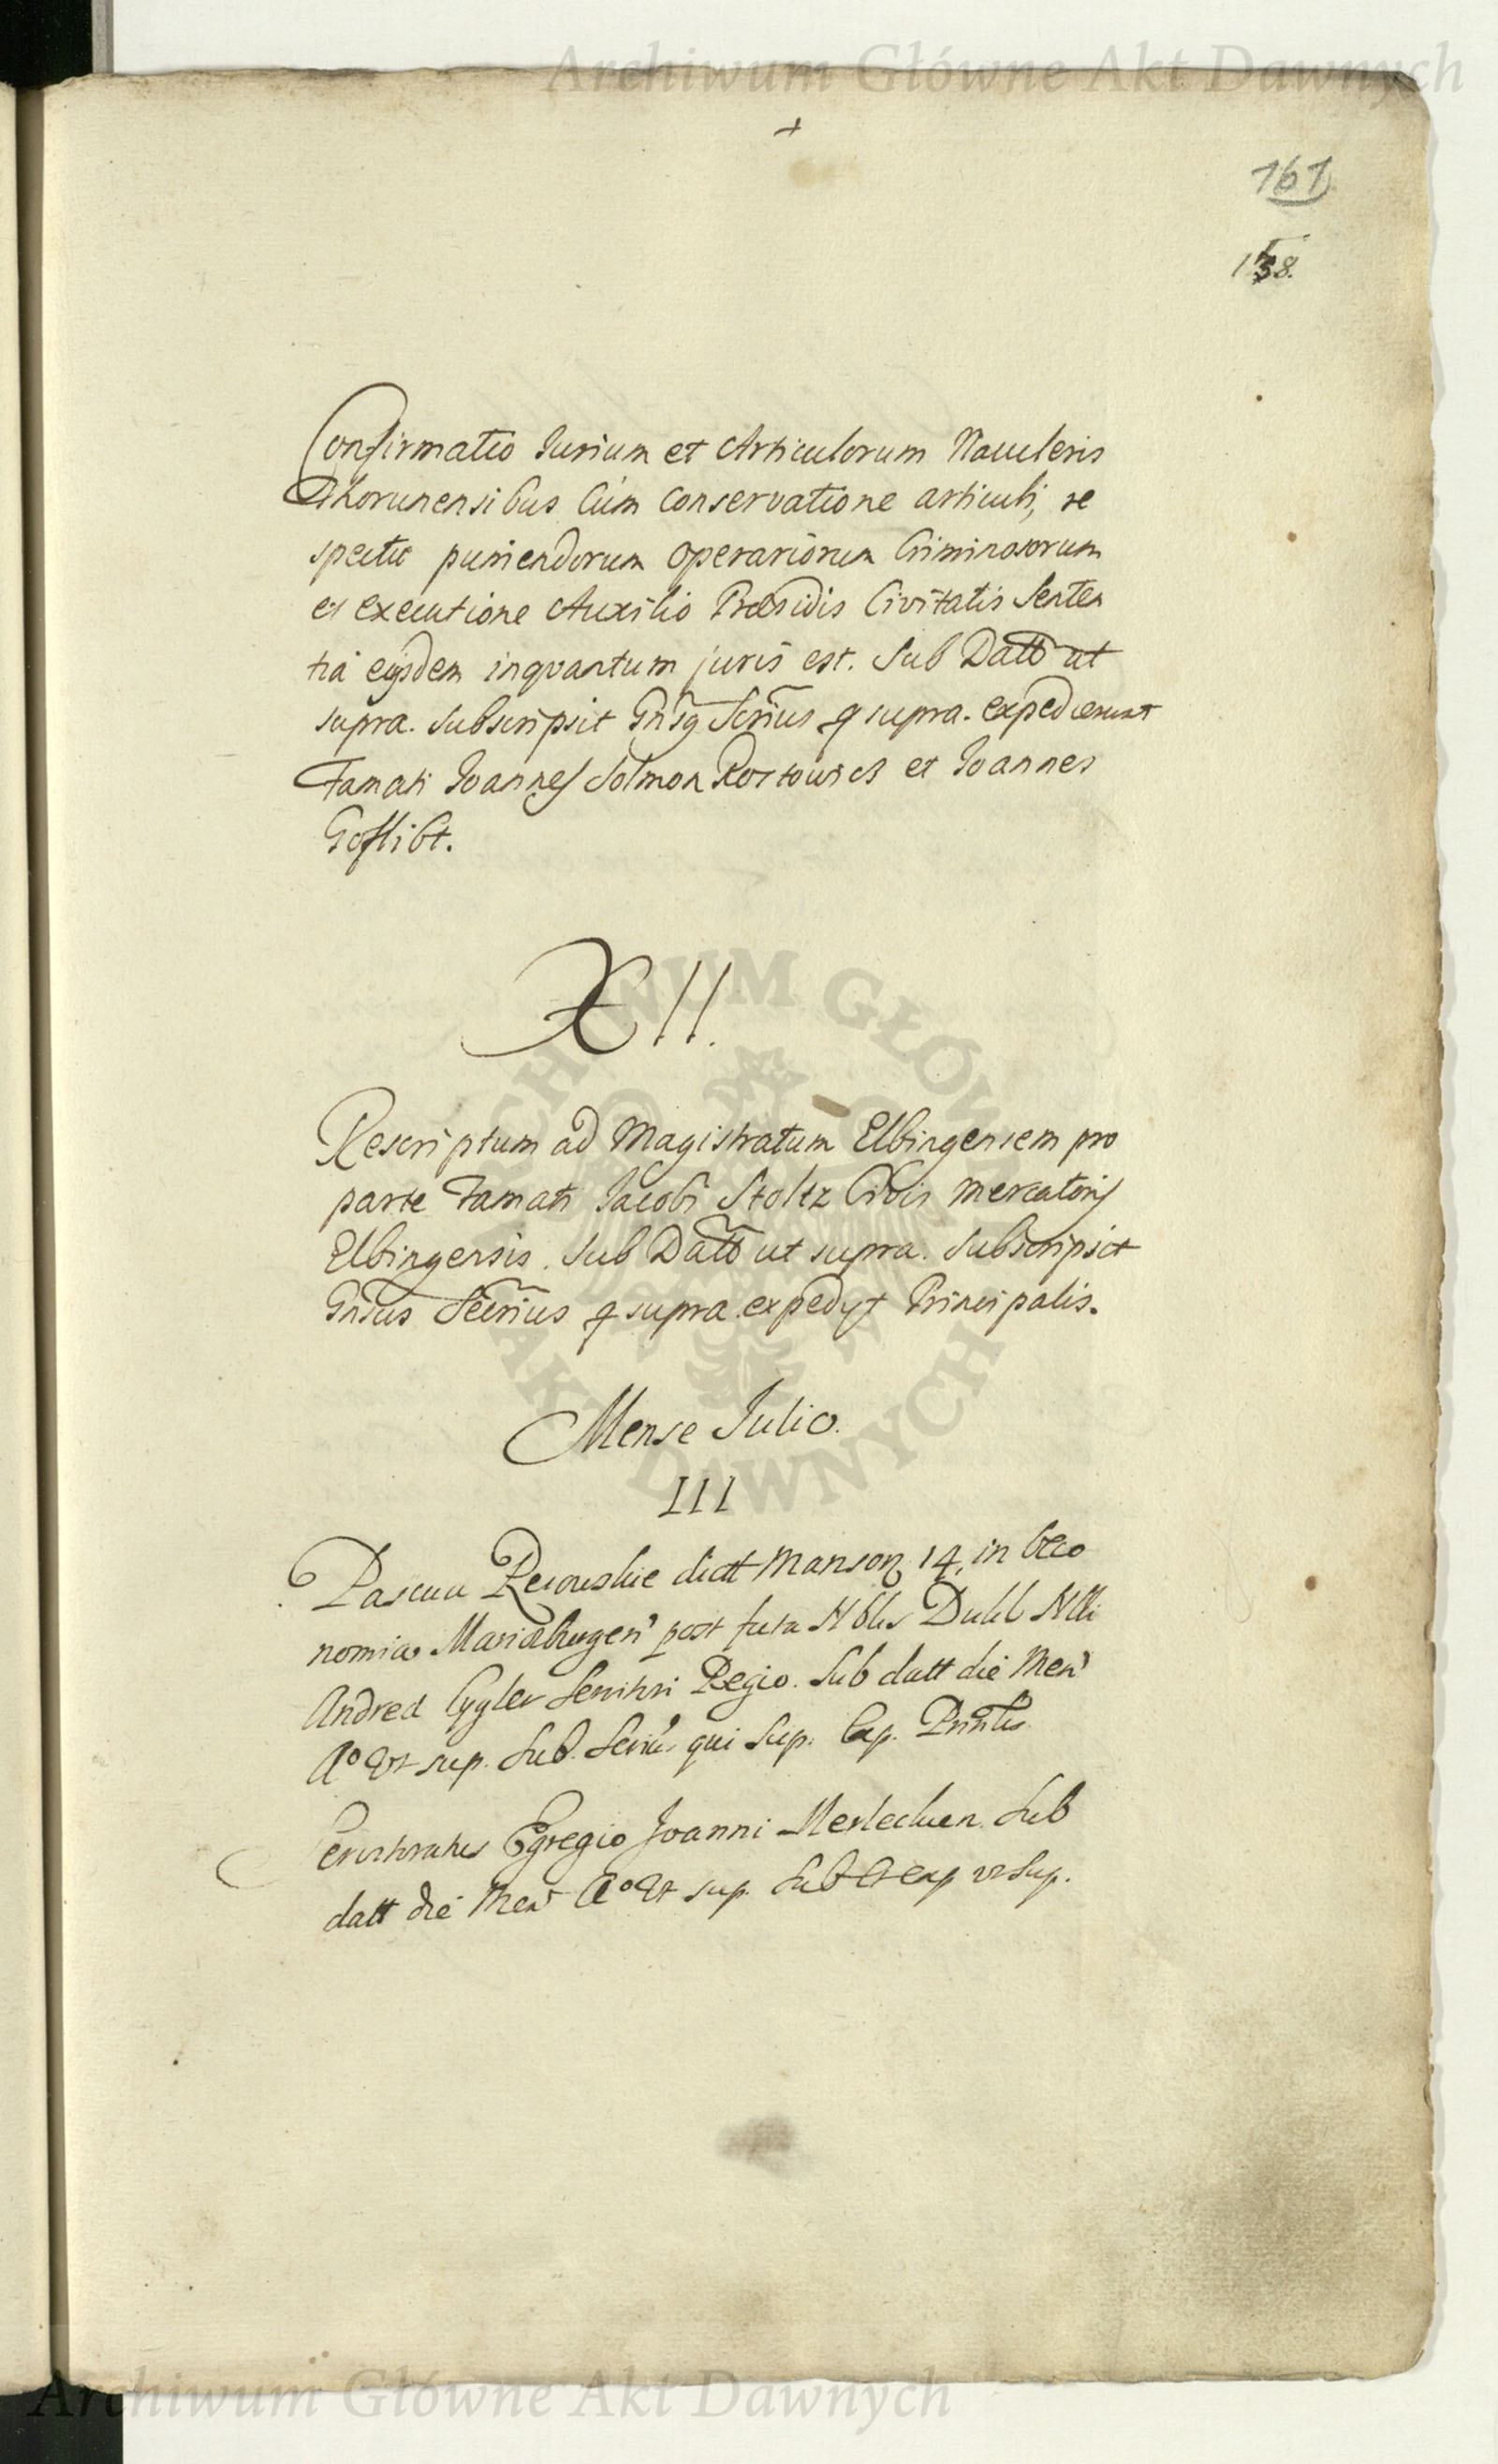 Archiwum Główne Akt Dawnych
+
161
158.
Confirmatio Jurium et Articulorum Naucleris
Thorunensibus Cum Conservatione articuli, re
spectu puniendorum operariorum Criminosorum
et executione Auxilio Præsidis Civitatis Senten
tia ejusdem inquantum juris est. Sub Datto ut
supra. Subscripsit Gnsq Scrius q supra. expedierunt
Famati Joannes Solmon et Joannes
XII.
Rescriptum ad Magistratum Elbingensem pro
parte Famati Jacobi Stoltz Civis Mercatoris
Elbingensis. Sub Datto ut supra. Subscripsit
Gnsus Secrius q supra expedyt Principalis.
Mense Julio.
III
Pascuu dictt Manson 14, in Oeco
nomia Mariæburgen post fata Nblis
Andreæ Cygler Servitori Regio. Sub datt die Men
Ao Ut sup. Sub. Secriu qui Sup. Exp. Prinlis
Egregio Joanni Sub
datt die Men Ao Ut sup. Sub Et exp ut Sup.
ARCHIWUM GŁÓWNE AKT DAWNYCH
Archiwum Główne Akt Dawnych